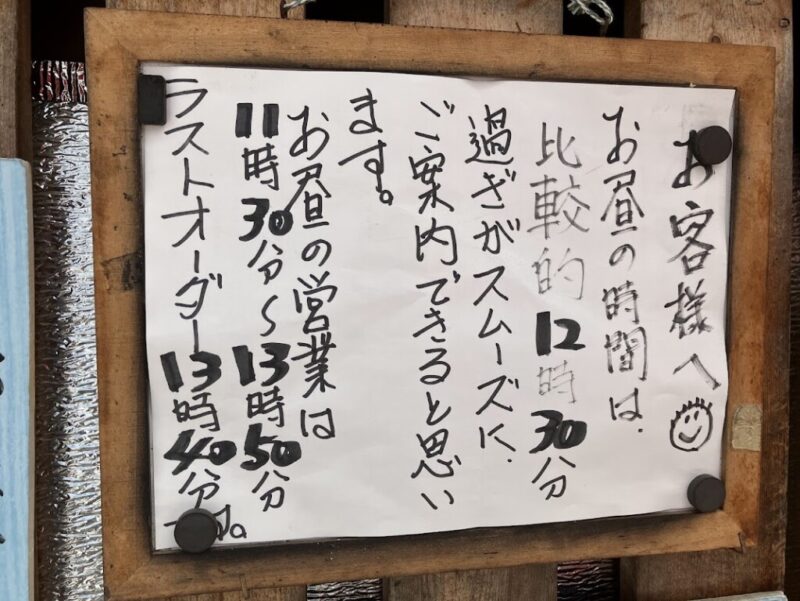 お客様へ
お昼の時間は、
比較的12時30分
過ぎがスムーズに、
ご案内できると思い
ます。
お昼の営業は
11時30分～13時50分
ラストオーダー13時40分です。